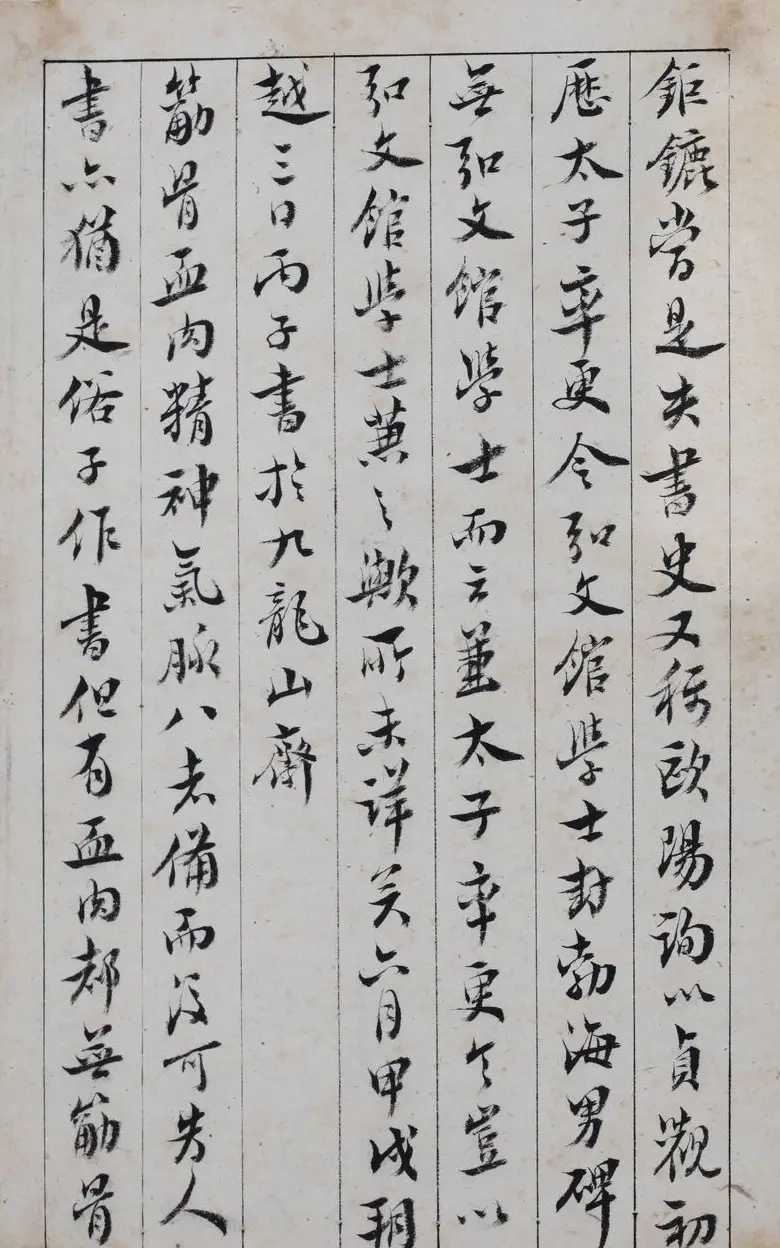 鉅鑣嘗是夫書史又稱歐陽詢以貞觀初
歷太子率更令弘文館學士封勃海男碑
無弘文館學士而云兼太子率更令豈以
弘文館學士兼之歟所未詳矣六月甲戌朔
越三日丙子書於九龍山齋
筋骨血肉精神氣脉八者備而後可為人
書亦猶是俗子作書但有血肉都無筋骨